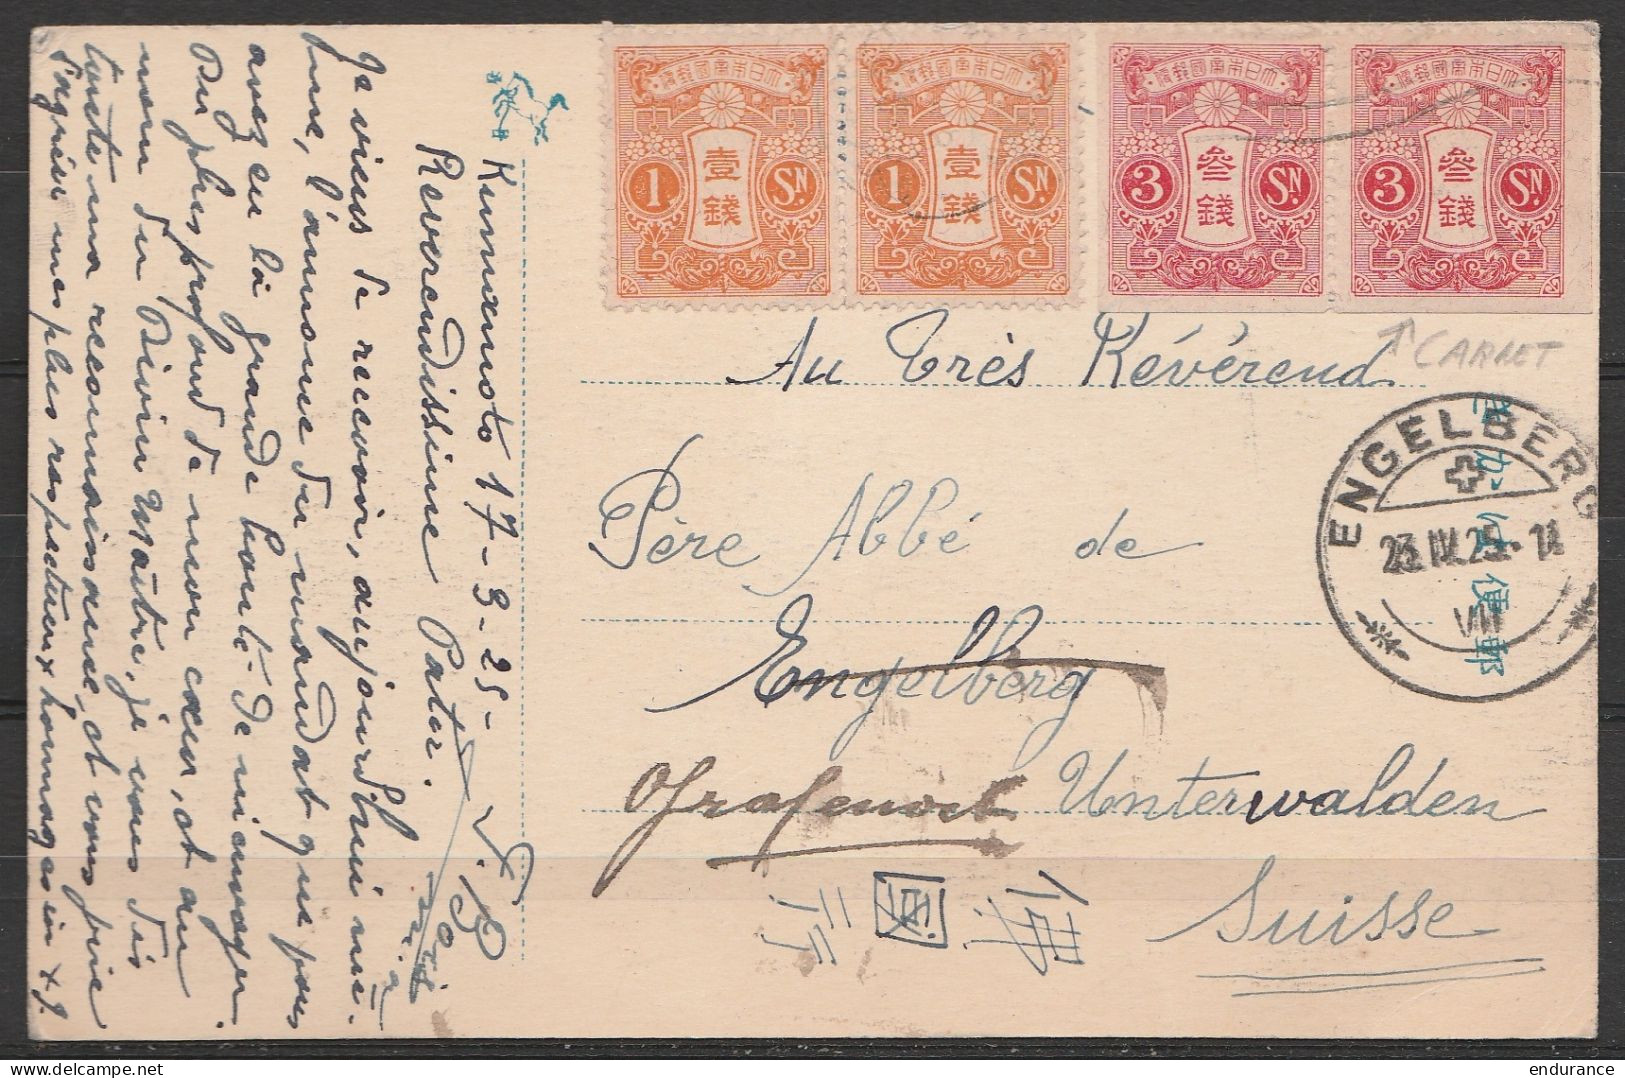 Kumamoto 17-3-25-
Reverendissime Pater.
Je viens de recevoir, aujourd'hui mê=
me, l'aumone du mandat que vous
avez eu la grande bonté de m'envoyer.
Du plus profond de mon cœur, et au
nom du Divin Maître, je vous dis
toute ma reconnaissance, et vous prie
d'agréer mes plus respectueux hommages in X J.
大日本帝國郵便
1 壹錢 Sⁿ
大日本帝國郵便
1 壹錢 Sⁿ
大日本帝國郵便
3 叄錢 Sⁿ
大日本帝國郵便
3 叄錢 Sⁿ
CARNET
Au Très Révérend
Père Abbé de
Engelberg
Grafenort Unterwalden
Suisse
佛國行
きかは便郵
ENGELBERG
23.IV.25.
VIII
endurance